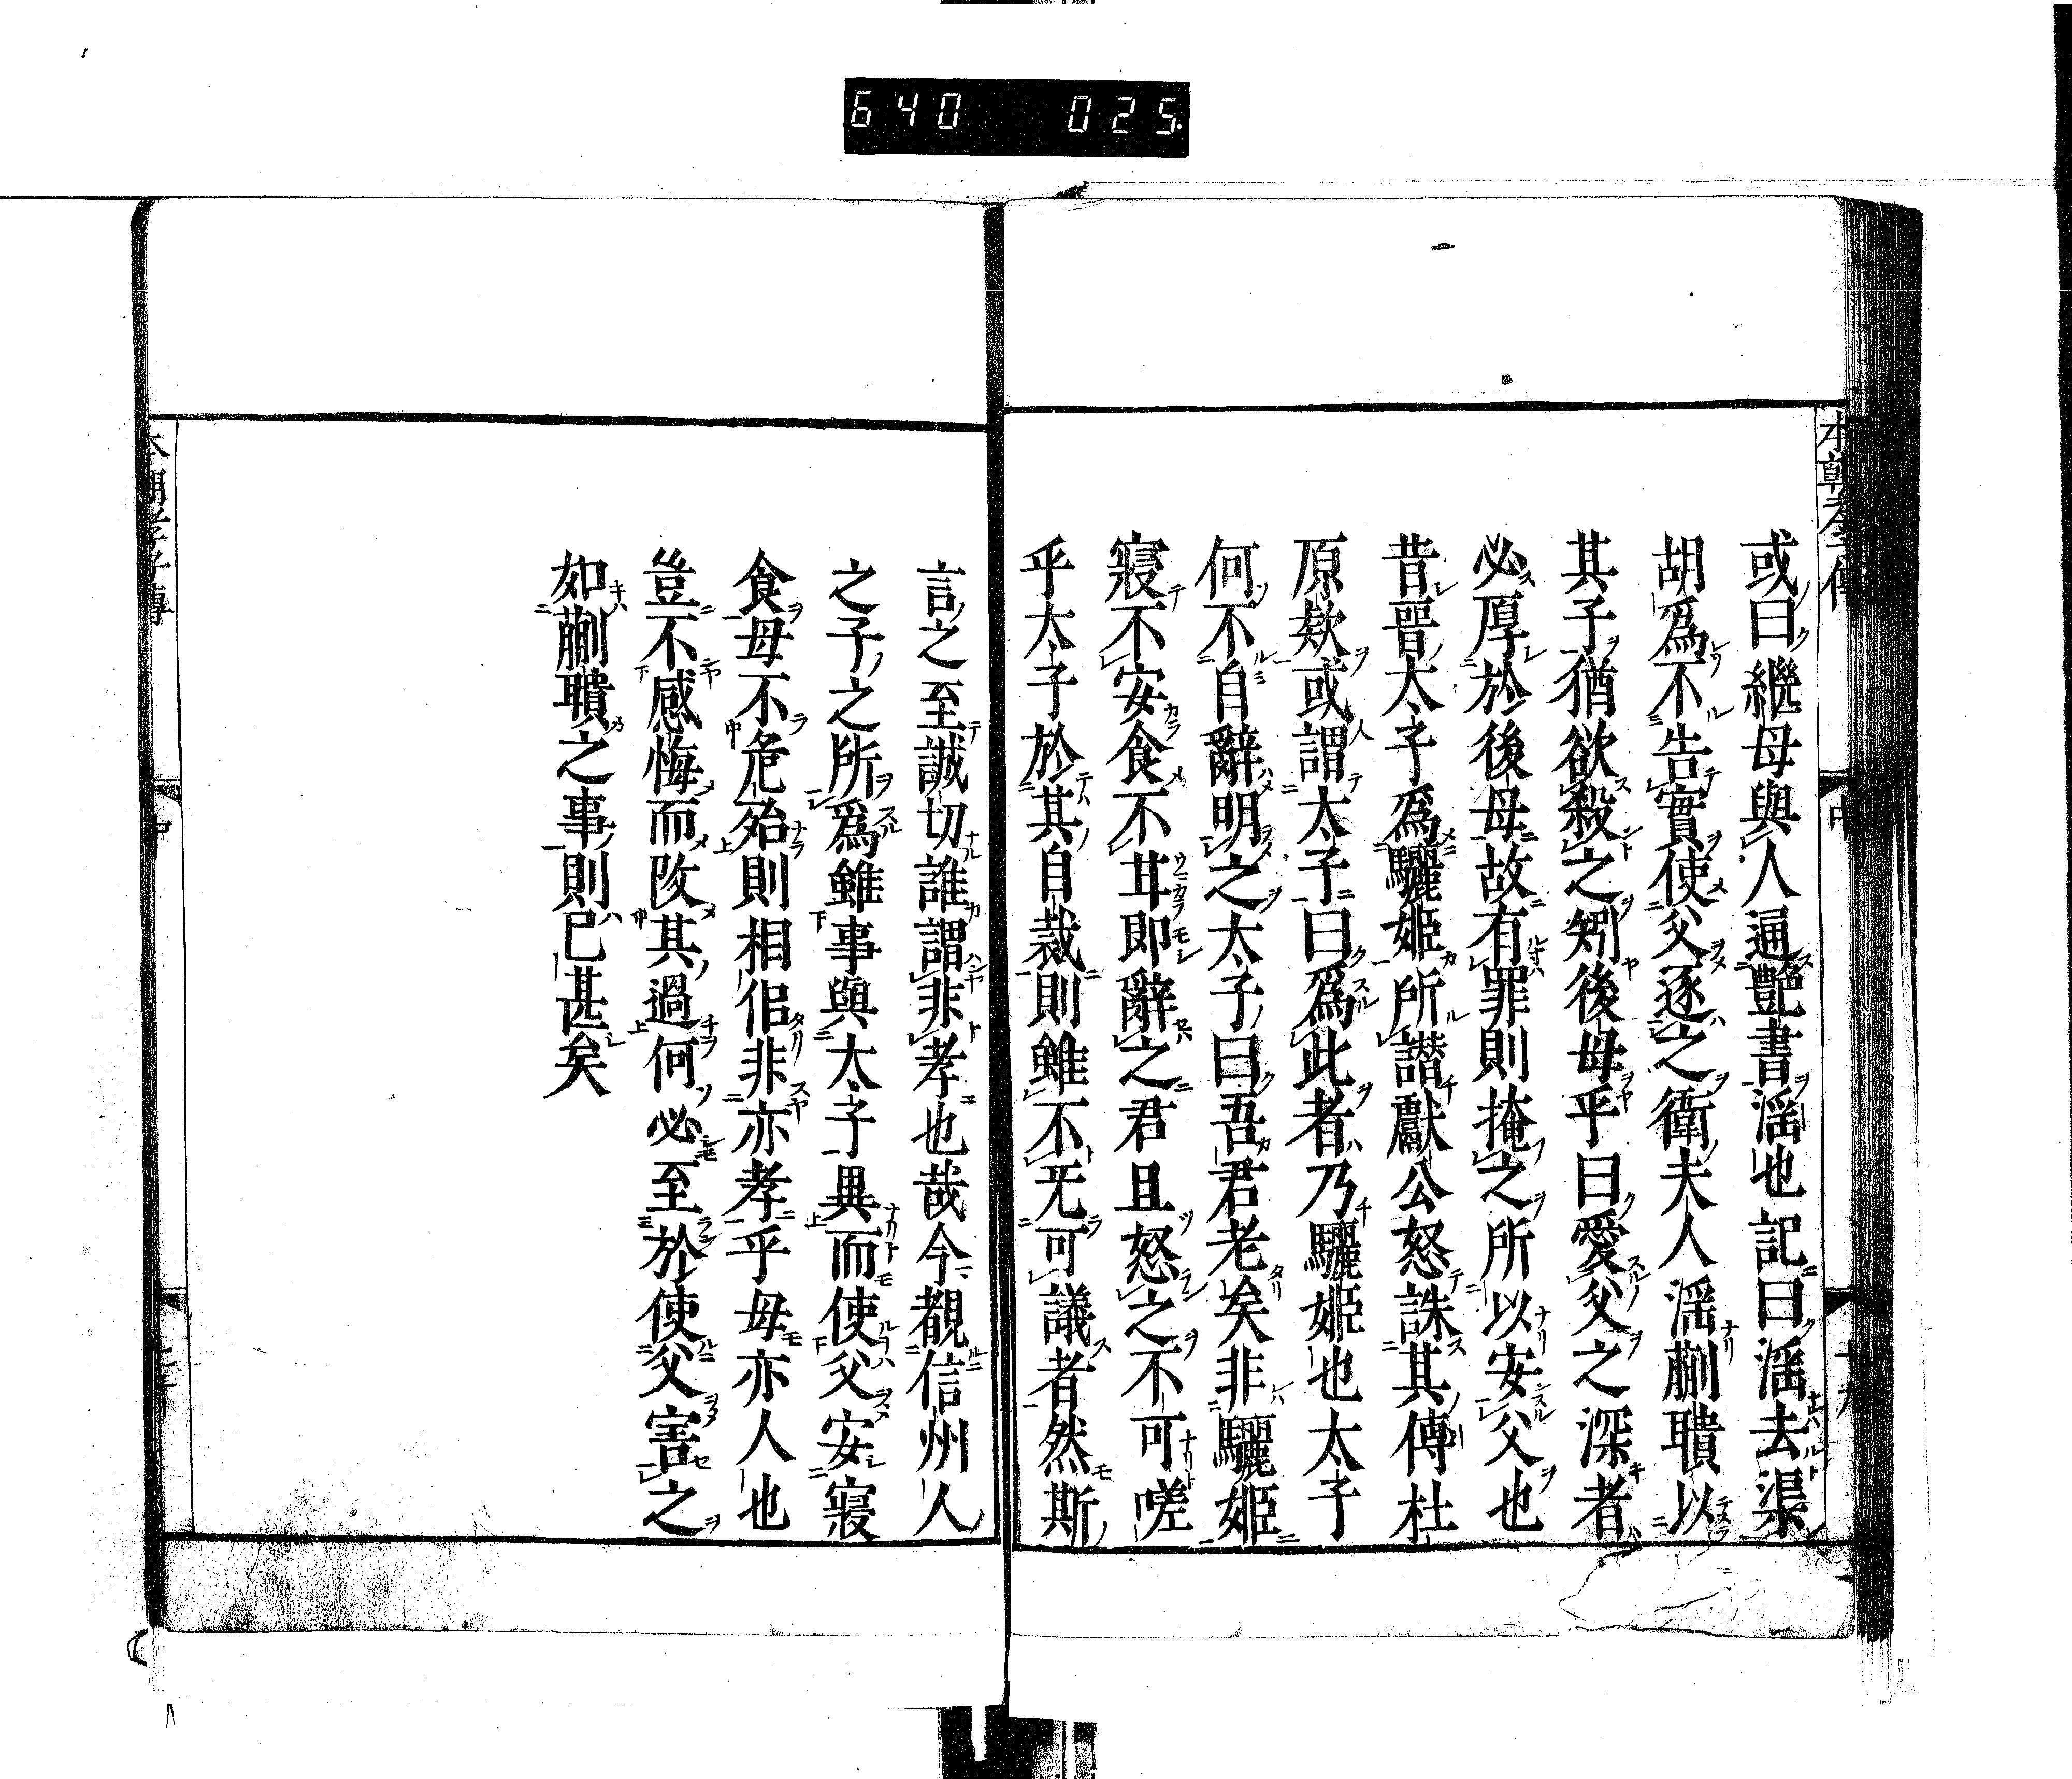 640 025
或曰繼母與人通艷書滛也記曰滛去渠
胡爲不告實使父逐之衛夫人滛蒯聵以
其子猶欲殺之矧後母乎曰愛父之深者
必厚於後母故有罪則掩之所以安父也
昔晉太子爲驪姬所譖獻公怒誅其傅杜
原欵或謂太子曰爲此者乃驪姬也太子
何不自辭明之太子曰吾君老矣非驪姬
寢不安食不甘即辭之君且怒之不可嗟
乎太子於其自裁則雖不无可議者然斯
言之至誠切誰謂非孝也哉今覩信州人
之子之所爲雖事與太子異而使父安寢
食母不危殆則相佀非亦孝乎母亦人也
豈不感悔而改其過何必至於使父害之
如蒯聵之事則已甚矣
本朝孝子傳
中